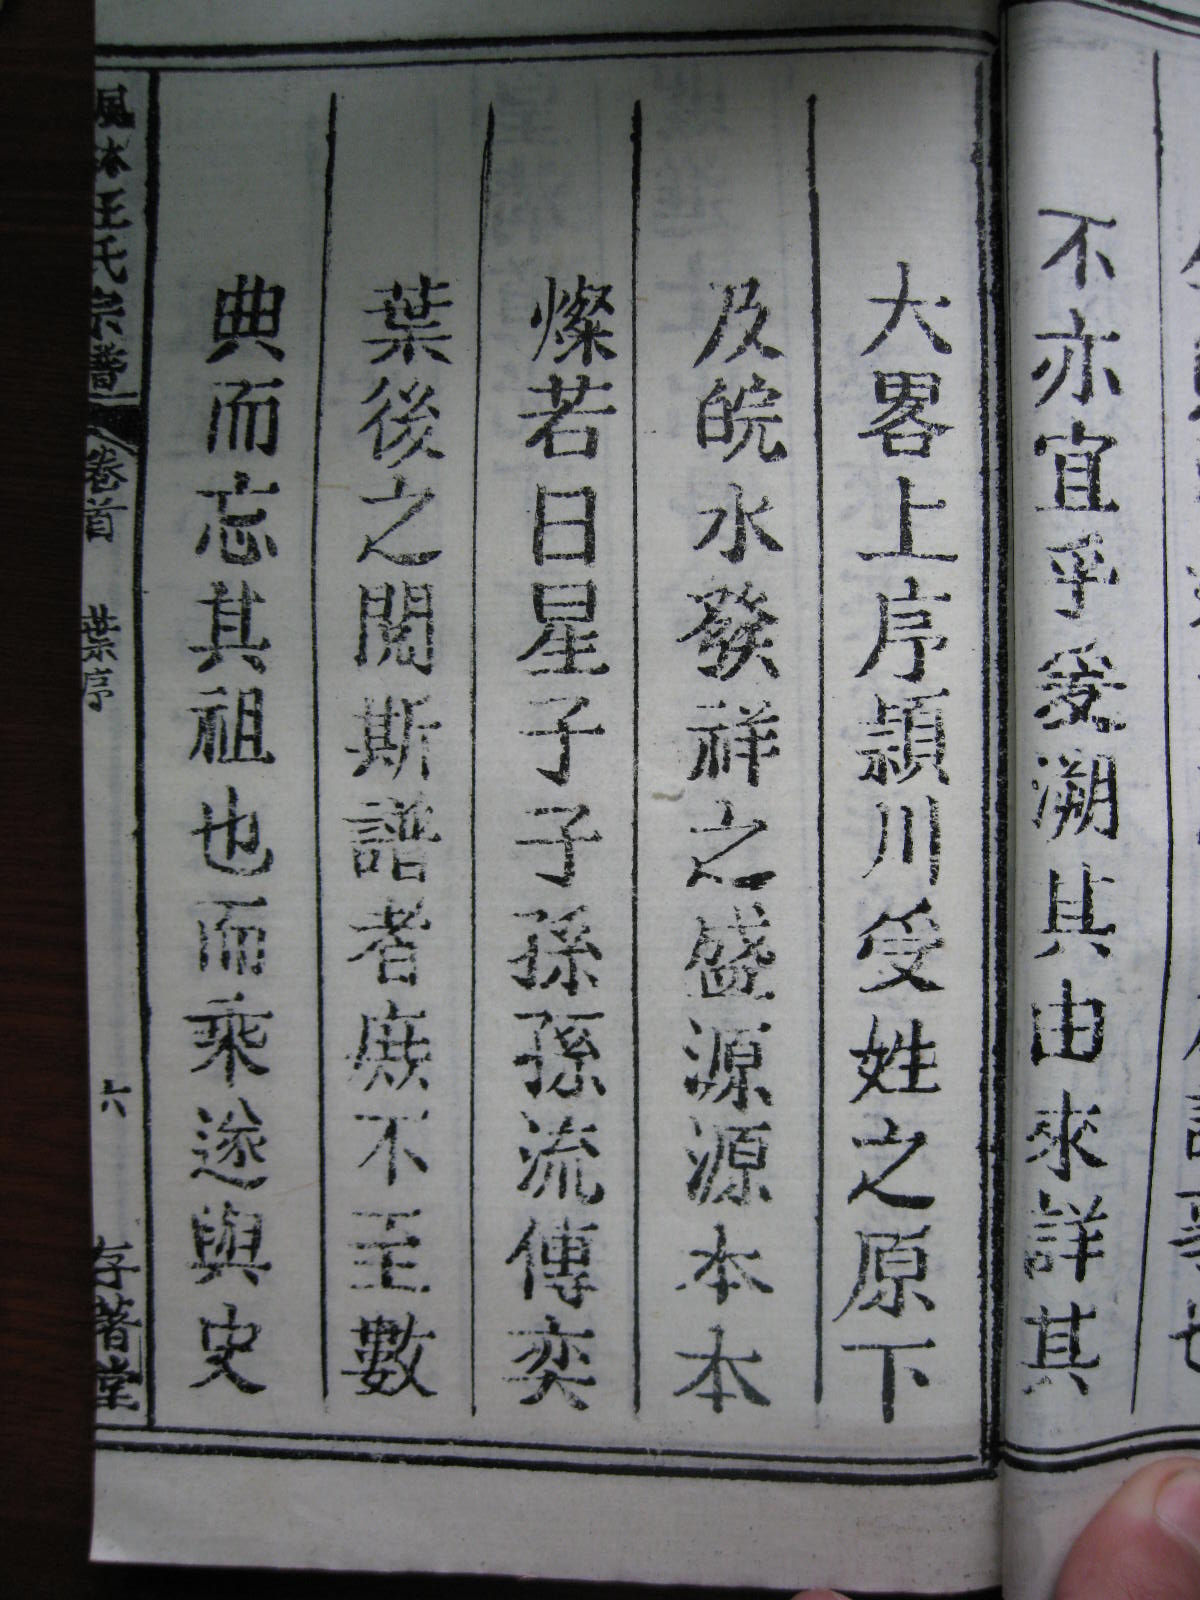 不亦宜乎爰溯其由來詳其
大畧上序潁川受姓之原下
及皖水發祥之盛源源本本
燦若日星子子孫孫流傳奕
葉後之閱斯譜者庶不至數
典而忘其祖也而乘遂與史
王氏宗譜 卷首 葉序 六 存著堂